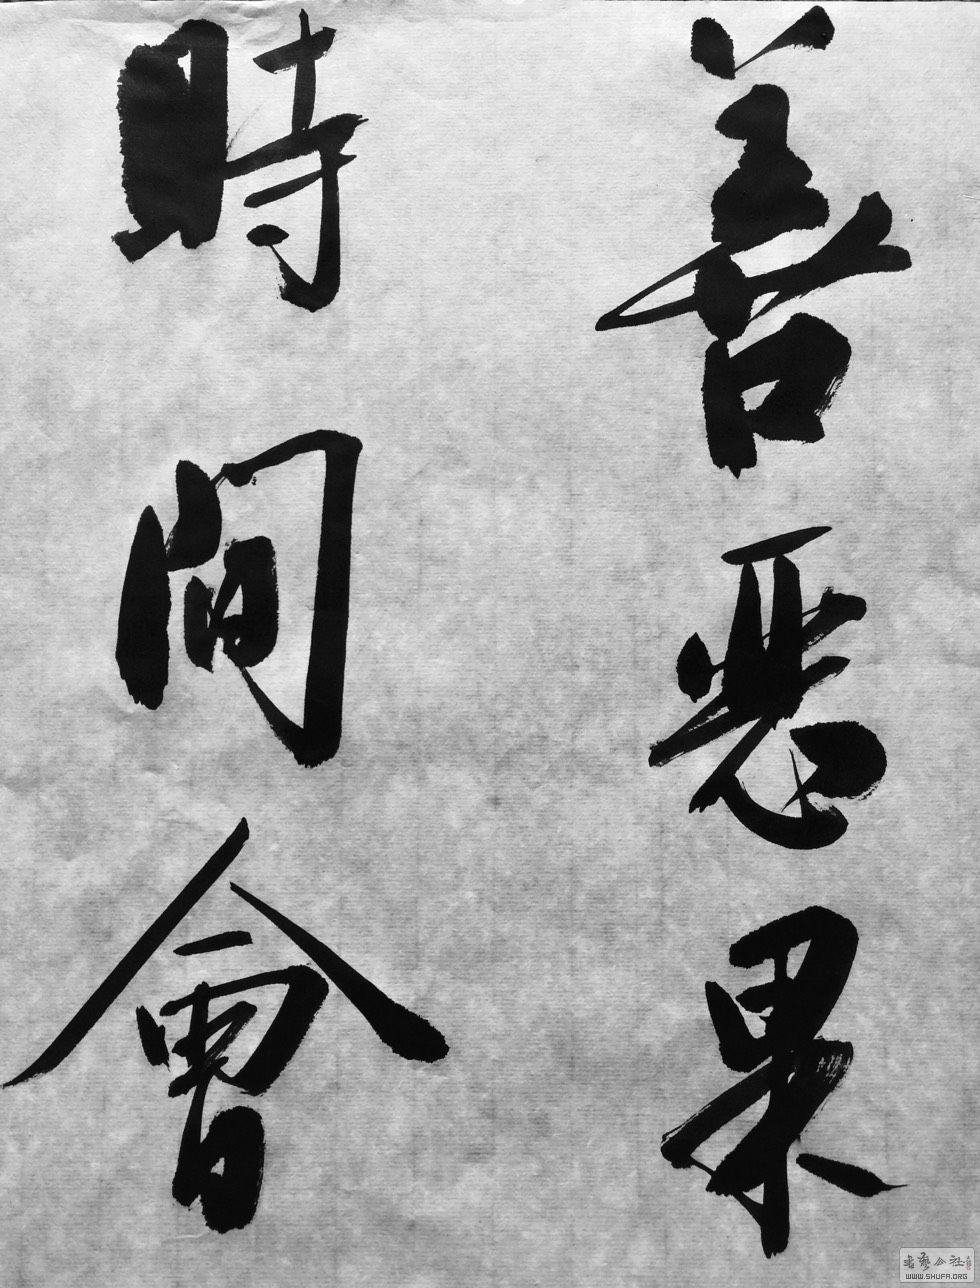 善惡果
時間會
WWW.SHUFA.ORG